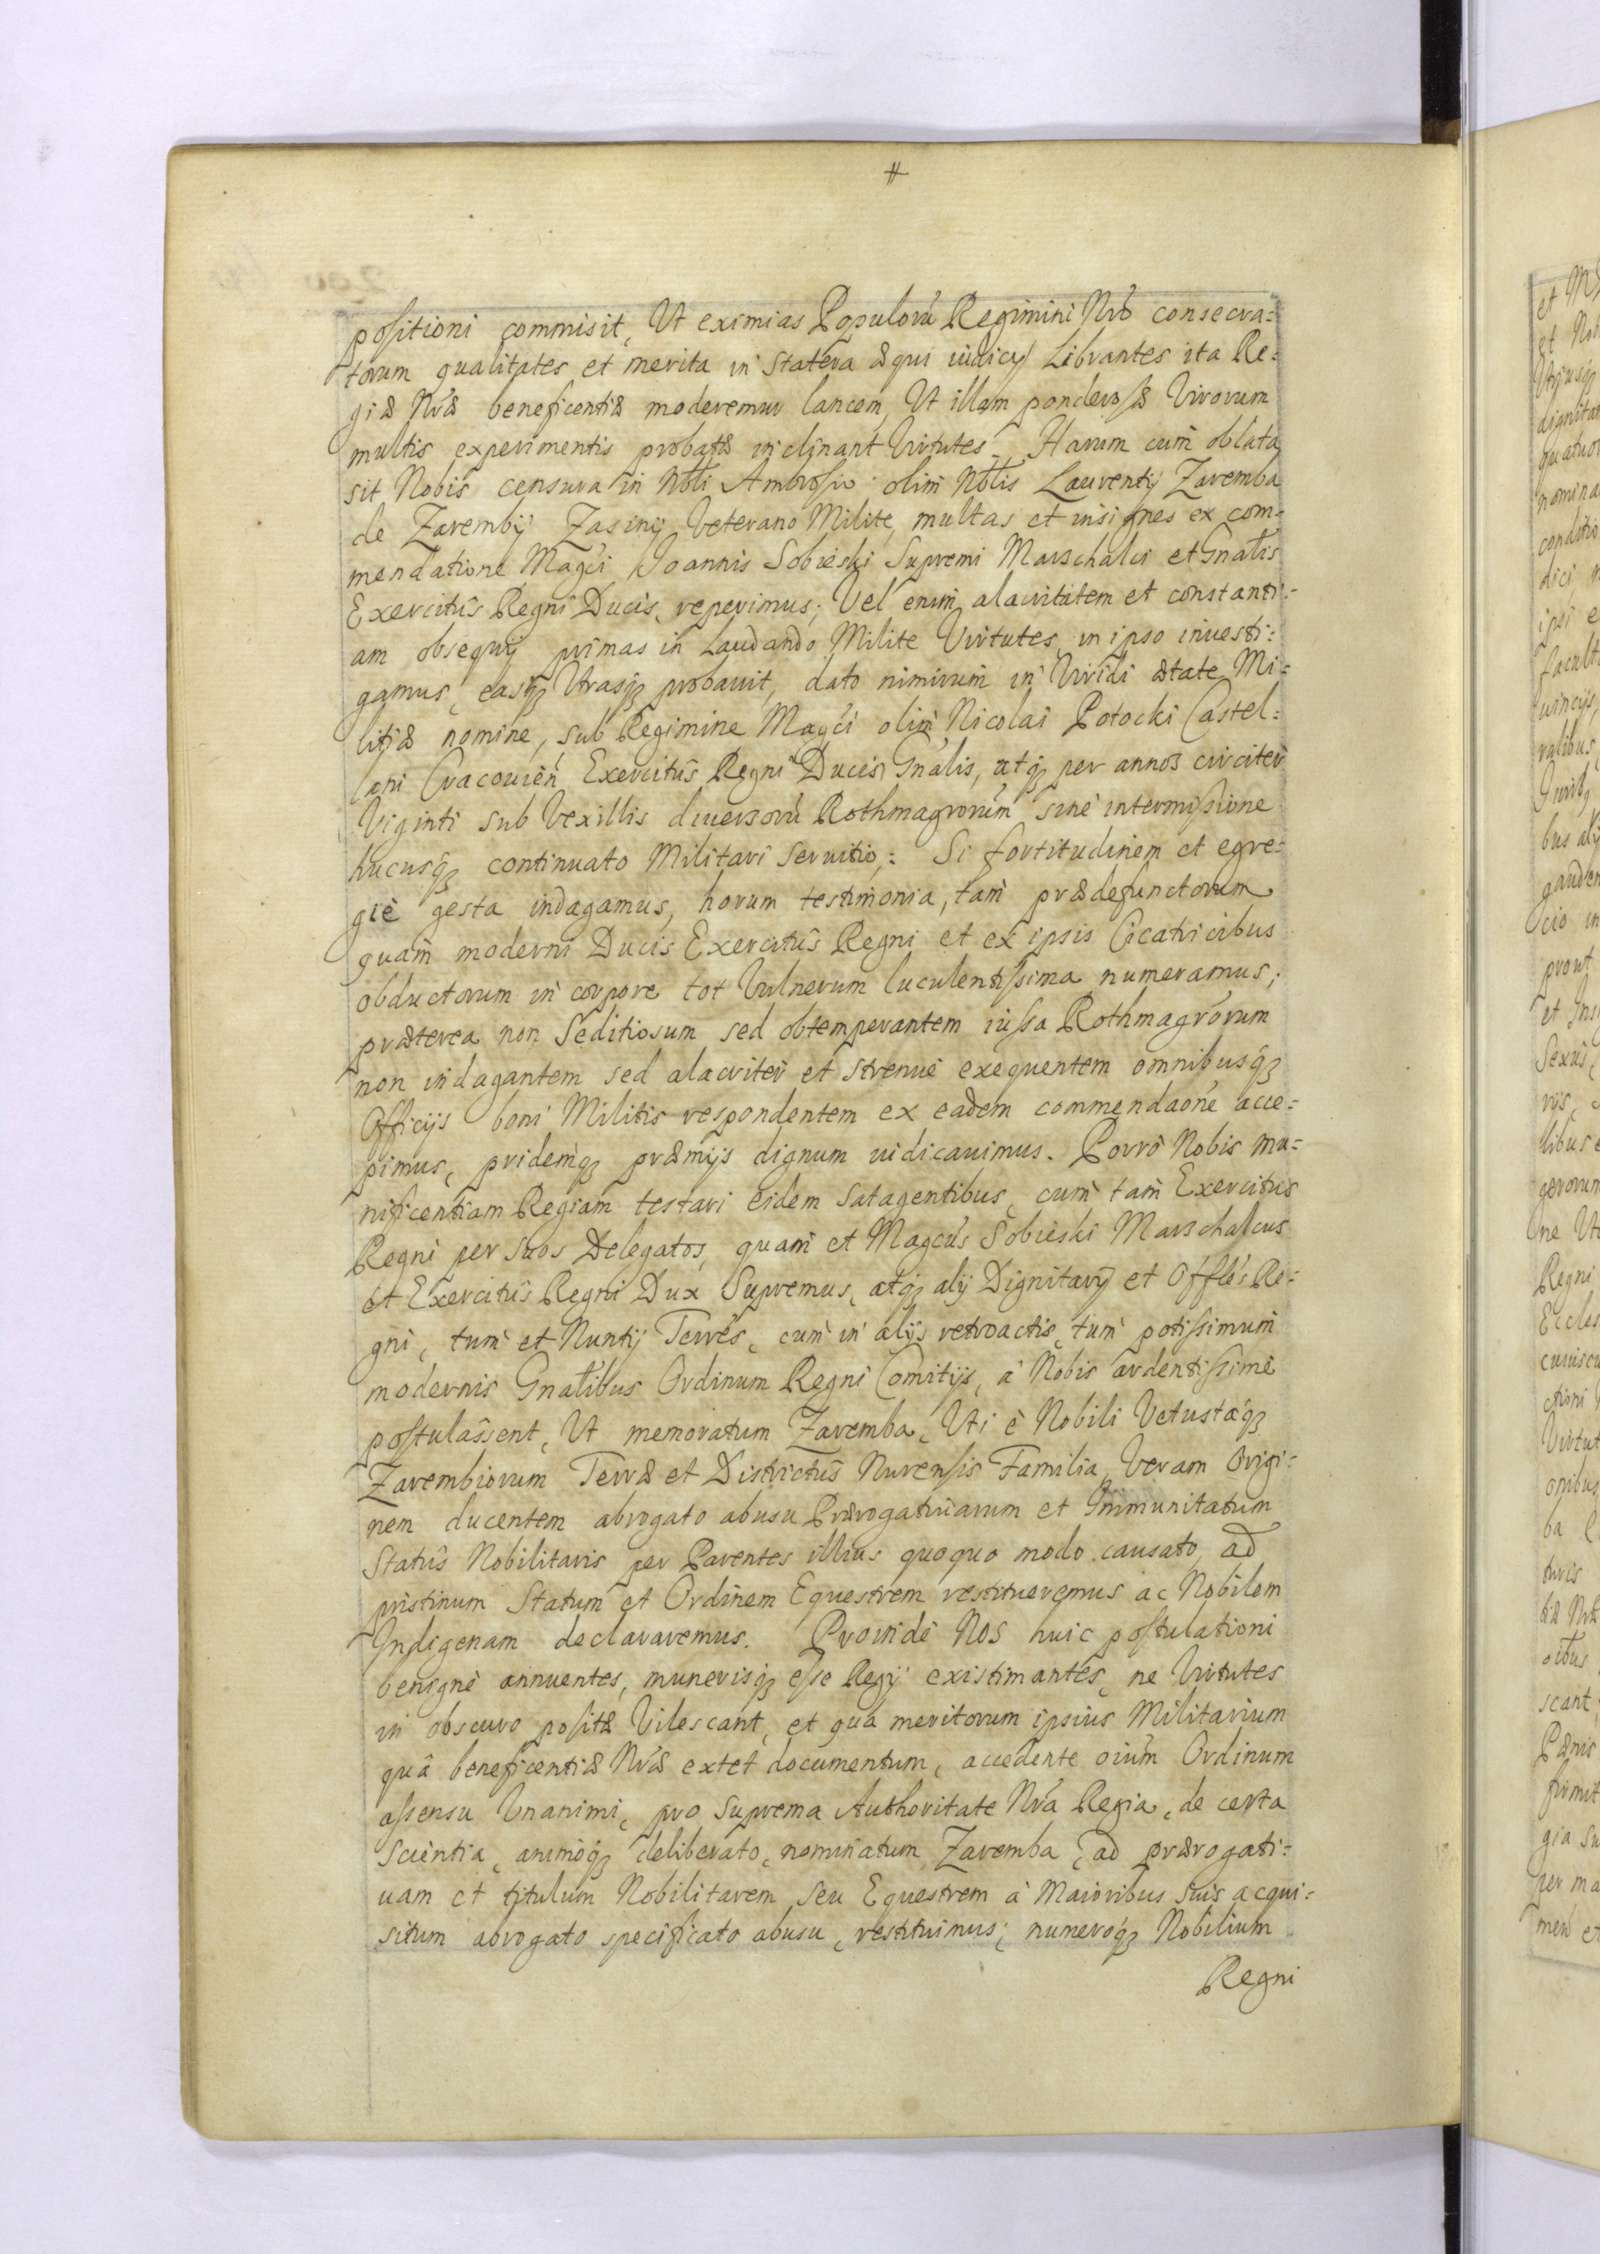 positioni commisit, Ut eximias Populorũ Regimini Nrõ consecra=
torum qualitates et merita in statera æqui iudicij Librantes ita Re=
giæ Nræ beneficentiæ moderemur lancem, Ut illam ponderosæ Virorum
multis experimentis probatæ inclinant Virtutes. Harum cum oblata
sit Nobis censura in Nbli Ambrosio olim Nblis Laurentij Zaremba
de Zaremby Zasiny Veterano Milite, multas et insignes ex com=
mendatione Magci Joannis Sobieski Supremi Marschalci et Gnalis
Exercitûs Regni Ducis, reperimus; Vel enim alacritatem et constanti=
am obsequij primas in Laudando Milite Virtutes, in ipso inuesti=
gamus, easq₃ Utrasq₃ probauit, dato nimirum in Viridi ætate Mi=
litiæ nomine, sub Regimine Magci olim Nicolai Potocki Castel=
lani Cracouien Exercitûs Regni Ducis Gnalis, atq₃ per annos circiter
Viginti sub Vexillis diuersorũ Rothmagrorum sine intermissione
hucusq₃ continuato Militari seruitio; Si fortitudinem et egre=
giè gesta indagamus, horum testimonia, tam prædefunctorum
quam moderni Ducis Exercitûs Regni et ex ipsis Cicatricibus
obductorum in corpore tot Vulnerum luculentissima numeramus;
præterea non Seditiosum sed obtemperantem iussa Rothmagrorum
non indagantem sed alacriter et strenuè exequentem omnibusq₃
Officijs boni Militis respondentem ex eadem commendaõne acce=
pimus, pridemq₃ præmijs dignum iudicauimus. Porrò Nobis mu=
nificentiam Regiam testari eidem satagentibus, cum tam Exercitus
Regni per suos Delegatos, quam et Magcus Sobieski Marschalcus
et Exercitûs Regni Dux Supremus, atq₃ alij Dignitarij et Offles Re=
gni, tum et Nuntij Terres, cum in alijs retroactis, tum potissimum
modernis Gnalibus Ordinum Regni Comitijs, à Nobis ardentissimè
postulassent, Ut memoratum Zaremba, Uti è Nobili Vetustaq₃
Zarembiorum Terræ et Districtûs Nurensis Familia, Veram Origi=
nem ducentem abrogato abusu Prærogatiuarum et Immunitatum
Statûs Nobilitaris per Parentes illius quoquo modo causato, ad
pristinum Statum et Ordinem Equestrem restitueremus ac Nobilem
Indigenam declararemus. Prouidè NOS huic postulationi
benignè annuentes, munerisq₃ esse Regij existimantes, ne Virtutes
in obscuro positæ Vilescant, et quà meritorum ipsius Militarium
quà beneficentiæ Nræ extet documentum, accedente oium Ordinum
assensu Unanimi, pro suprema Authoritate Nra Regia, de certa
scientia, animoq₃ deliberato, nominatum Zaremba, ad prærogati=
uam et titulum Nobilitarem seu Equestrem à Maioribus suis acqui=
situm abrogato specificato abusu, restituimus; numeroq₃ Nobilium
Regni